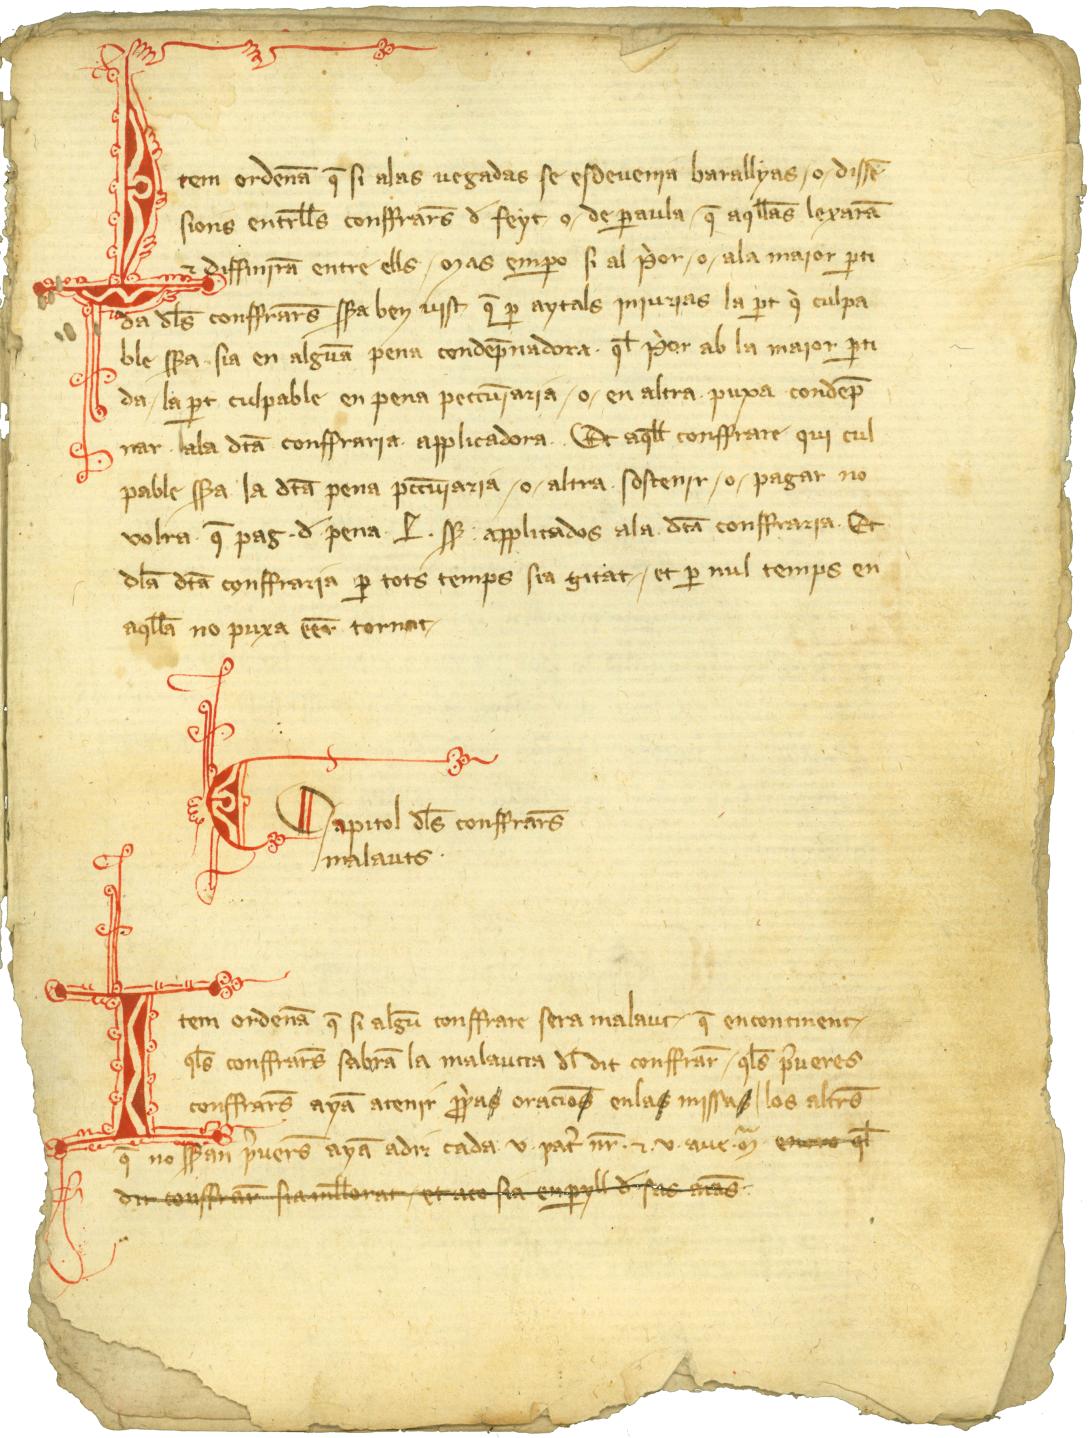 Item ordenā q̄ si alas vegadas se esdevenia barallyas / o / dissē
sions entrells conffrar̄s d feyt o / de ꝑaula / q̄ aqll̄as lexarā
⁊ diffinirā entre ells / Mas emꝑo si al p̄or / o / ala maior ꝑti
da dl̄s conffrar̄s sera ben vist q̄ ꝑ aytals iniurias la ꝑt q̄ culpa
ble sera sia en algūa pena condēpnadora ql̄ p̄or ab la maior ꝑti
da / la ꝑt culpable en pena peccūiaria / o / en altra puxa condēp
nar ala dt̄a conffraria applicadora Et aqll̄ conffrare qui cul
pable sera la dt̄a pena pcc̄uiaria / o / altra sostenir / o / pagar no
volra q̄ pag d pena L sš applicados ala dt̄a conffraria Et
dl̄a dt̄a conffraria ꝑ tots temps sia gitat / et ꝑ nul temps en
aqll̄a no puxa eēr tornat
Capitol dl̄s conffrar̄s
malauts
Item ordenā q̄ si algū conffrare sera malaut q̄ encontinent
ql̄s conffrar̄s sabrā la malautia dl̄ dit conffrar̄ / ql̄s p̄veres
conffrar̄s ayā atenir p̄pyas oracios enlas missas / los altrs̄
q̄ no seran p̄vers̄ ayā adir cada v pat̄r nr̄ ⁊ v ave m̄ ql̄
dit conffrar̄ sia mll̄orat / et aco sia en ꝑyll d sas aīas